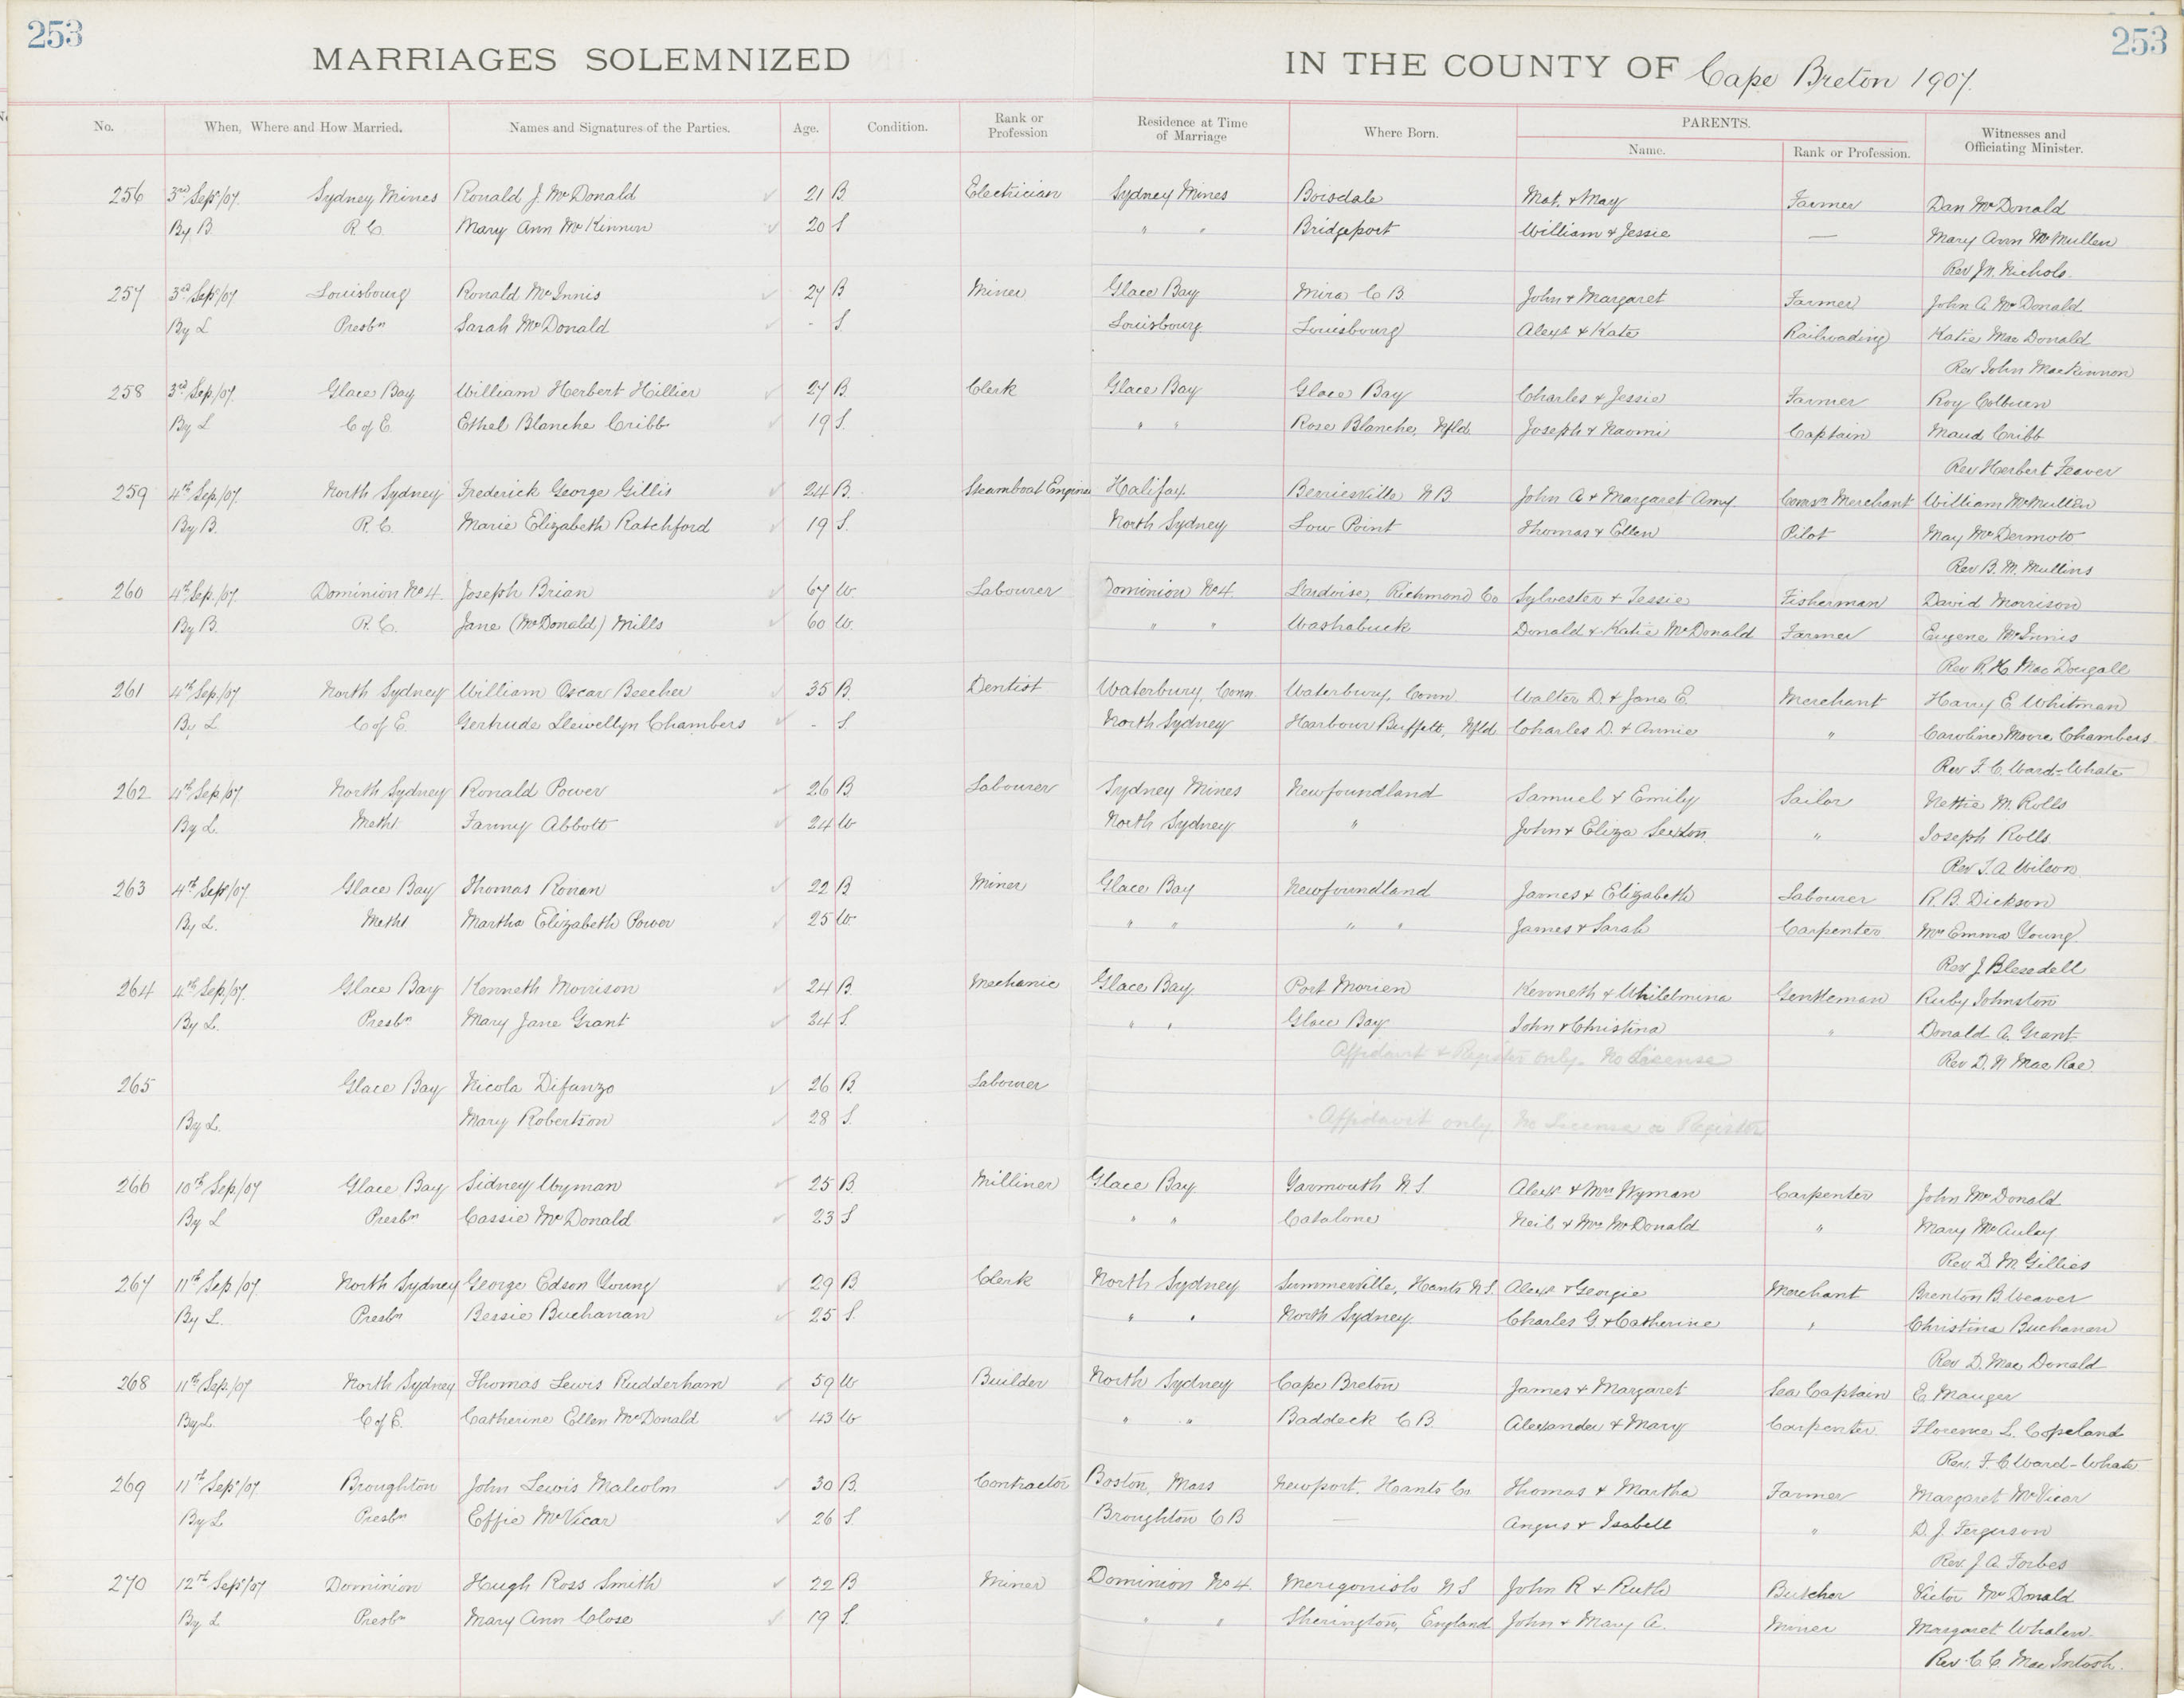 253
253
MARRIAGES SOLEMNIZED IN THE COUNTY OF Cape Breton 1907.
No. When, Where and How Married. Names and Signatures of the Parties. Age. Condition. Rank or Profession Residence at Time of Marriage Where Born. PARENTS. Name. Rank or Profession. Witnesses and Officiating Minister.
256 3rd Sep/07. Sydney Mines Ronald J. McDonald 21 B. Electrician Sydney Mines Boisdale Mat. & May Farmer Dan McDonald
By B. R C. Mary Ann McKinnon 20 S " " Bridgeport William & Jessie — Mary Ann McMullen
Rev J.N. Nichols.
257 3rd Sep/07 Louisbourg Ronald McInnis 27 B Miner Glace Bay Mira C B. John & Margaret Farmer John A. McDonald
By L Presbn Sarah McDonald - S. Louisbourg Louisbourg Alexr & Kate Railroading Katie MacDonald
Rev John MacKinnon
258 3rd Sep./07. Glace Bay William Herbert Hillier 27 B. Clerk Glace Bay Glace Bay Charles & Jessie Farmer Roy
By L C of E. Ethel Blanche Cribb 19 S. " " Rose Blanche, Nfld. Joseph & Naomi Captain Maud Cribb
Rev Herbert Feaver
259 4th Sep./07. North Sydney Frederick George Gillis 24 B. Steamboat Engineer Halifax N B John A & Margaret Amy. Merchant William McMullen
By B. R. C. Marie Elizabeth Ratchford 19 S. North Sydney Low Point Thomas & Ellen Pilot May McDermott
Rev B. M. Mullins
260 4th Sep./07 Dominion No 4. Joseph Brian 67 W. Labourer Dominion No 4. L'ardoise, Richmond Co Sylvester & Jessie Fisherman David Morrison
By B. R. C. Jane (McDonald) Mills 60 W. " " Washabuck Donald & Katie McDonald Farmer Eugene McInnis
Rev R. H. MacDougall
261 4th Sep/07 North Sydney William Oscar Beecher 35 B. Dentist Waterbury, Conn. Waterbury, Conn. Walter D. & Jane E. Merchant Harry E Whitman
By L. C of E. Gertrude Llewellyn Chambers - S. North Sydney Harbour Buffett, Nfld. Charles D. & Annie " Caroline Moore Chambers
Rev F. C. Ward-Whate
262 4th Sep/07 North Sydney Ronald Power 26 B. Labourer Sydney Mines Newfoundland Samuel & Emily Sailor Nettie M. Rolls
By L. Metht Fanny Abbott 24 W North Sydney " John & Eliza Sexton. " Joseph Rolls
Rev J. A. Wilson
263 4th Sep/07. Glace Bay Thomas Ronan 22 B Miner Glace Bay Newfoundland James & Elizabeth Labourer R. B. Dickson
By L. Metht Martha Elizabeth Power 25 W. " " " " James & Sarah Carpenter Mrs Emma Young
Rev J Blesedell
264 4th Sep/07. Glace Bay Kenneth Morrison 24 B. Mechanic Glace Bay Port Morien Kenneth & Whilelmina Gentleman Ruby Johnston
By L. Presbn Mary Jane Grant 24 S. " " Glace Bay John & Christina " Donald A. Grant
Affidavit & Register only. No License Rev D. N MacRae
265 Glace Bay Nicola Difanzo 26 B. Labourer
By L. Mary Robertson 28 S. Affidavit only No License or Register
266 10th Sep./07 Glace Bay Sidney Wyman 25 B. Milliner Glace Bay Yarmouth N.S. Alexr & Mrs Wyman Carpenter John McDonald
By L Presbn Cassie McDonald 23 S " " Catalone Neil & Mrs McDonald " Mary McAuley
Rev D. M Gillies
267 11th Sep/07. North Sydney George Edson Young 29 B. Clerk North Sydney Summerville, Hants N.S. Alexr & Georgie Merchant Brenton B. Weaver
By L. Presbn Bessie Buchanan 25 S. " " North Sydney Charles G. & Catherine " Christina Buchanan
Rev D. MacDonald
268 11th Sep./07 North Sydney Thomas Lewis Rudderham 59 W Builder North Sydney Cape Breton James & Margaret Sea Captain E. Mauger
By L. C of E. Catherine Ellen McDonald 43 W " " Baddeck C.B. Alexander & Mary Carpenter. Florence L. Copeland
Rev. F. C. Ward-Whate
269 11th Sep/07. Broughton John Lewis Malcolm 30 B. Contractor Boston, Mass Newport, Hants Co. Thomas & Martha Farmer Margaret McVicar
By L Presbn Effie McVicar 26 S. Broughton C B — Angus & Isabell " D. J. Ferguson
Rev. J. A. Forbes
270 12th Sep/07 Dominion Hugh Ross Smith 22 B Miner Dominion No 4. Merigonish N S John R & Ruth Butcher Victor McDonald
By L Presbn Mary Ann Close 19 S. " " Sherington, England John & Mary A. Miner Margaret Whalen.
Rev. C. C. MacIntosh.